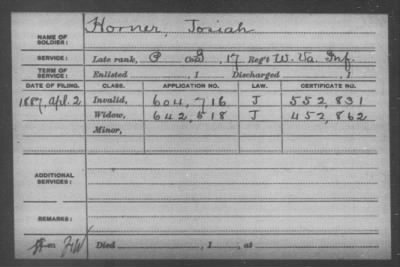 NAME OF SOLDIER: Horner, Josiah
SERVICE: Late rank, P Co. G, 17 Reg't W. Va. Inf.
TERM OF SERVICE: Enlisted , 1 Discharged , 1
DATE OF FILING. CLASS. APPLICATION NO. LAW. CERTIFICATE NO.
1887, Apl. 2 Invalid, 604,716 J 552,831
Widow, 642,518 J 452,862
Minor,
ADDITIONAL SERVICES:
REMARKS:
Died , 1 , at